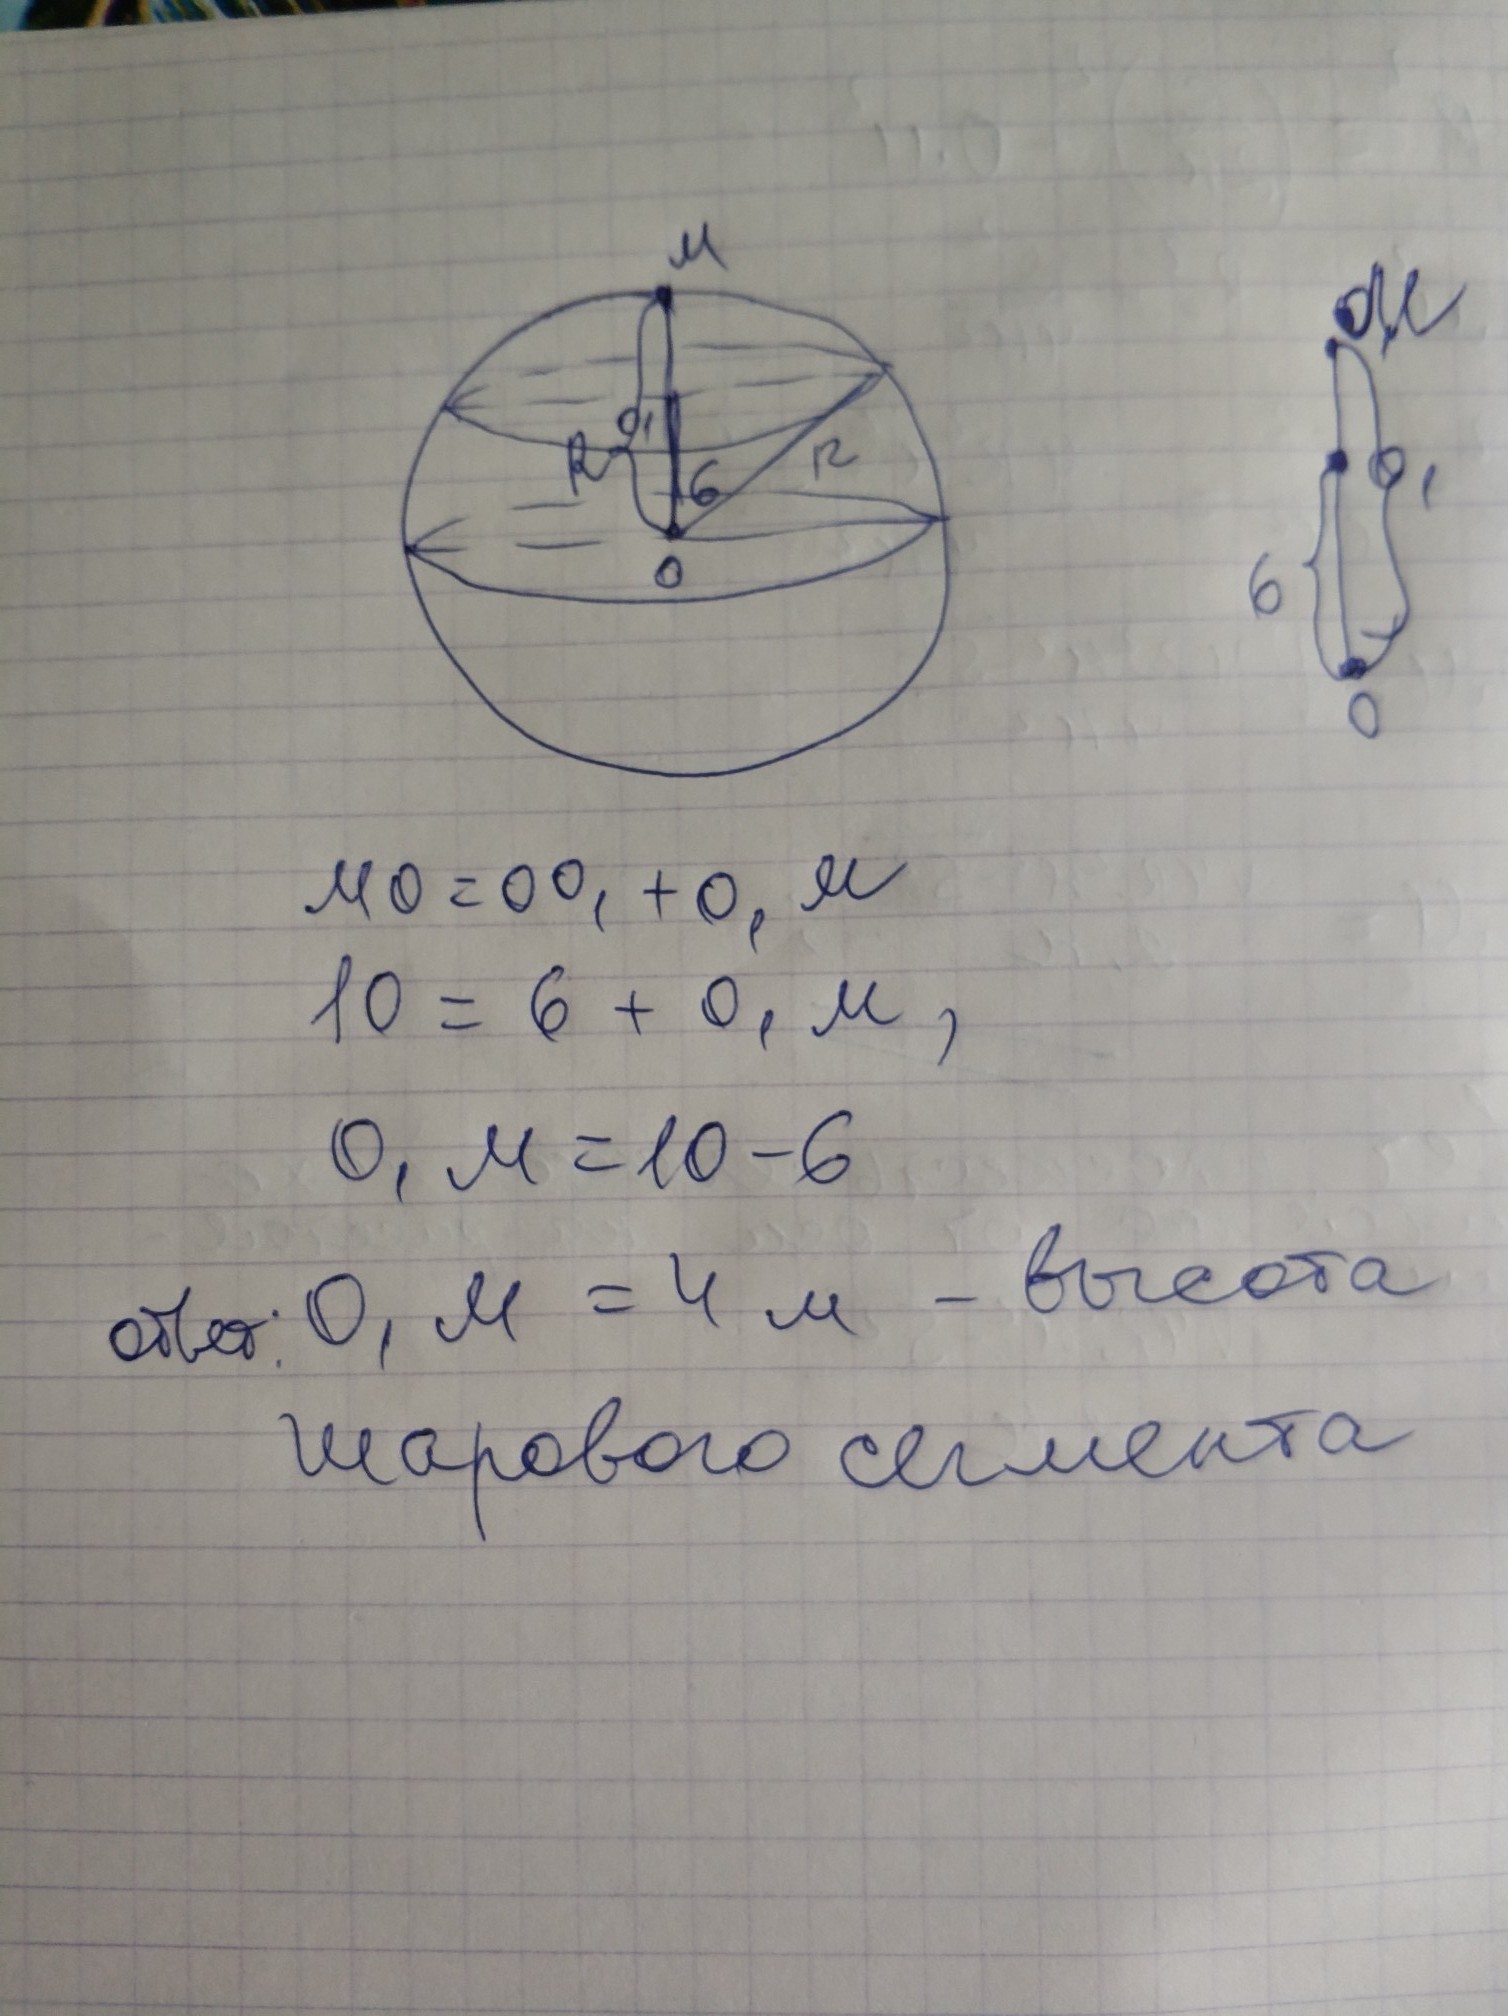 М
М
O₁
R
6
R
O
O₁
6
O
МО = OO₁ + O₁М
10 = 6 + O₁М,
O₁М = 10 - 6
ответ: O₁М = 4 м - высота
шарового сегмента